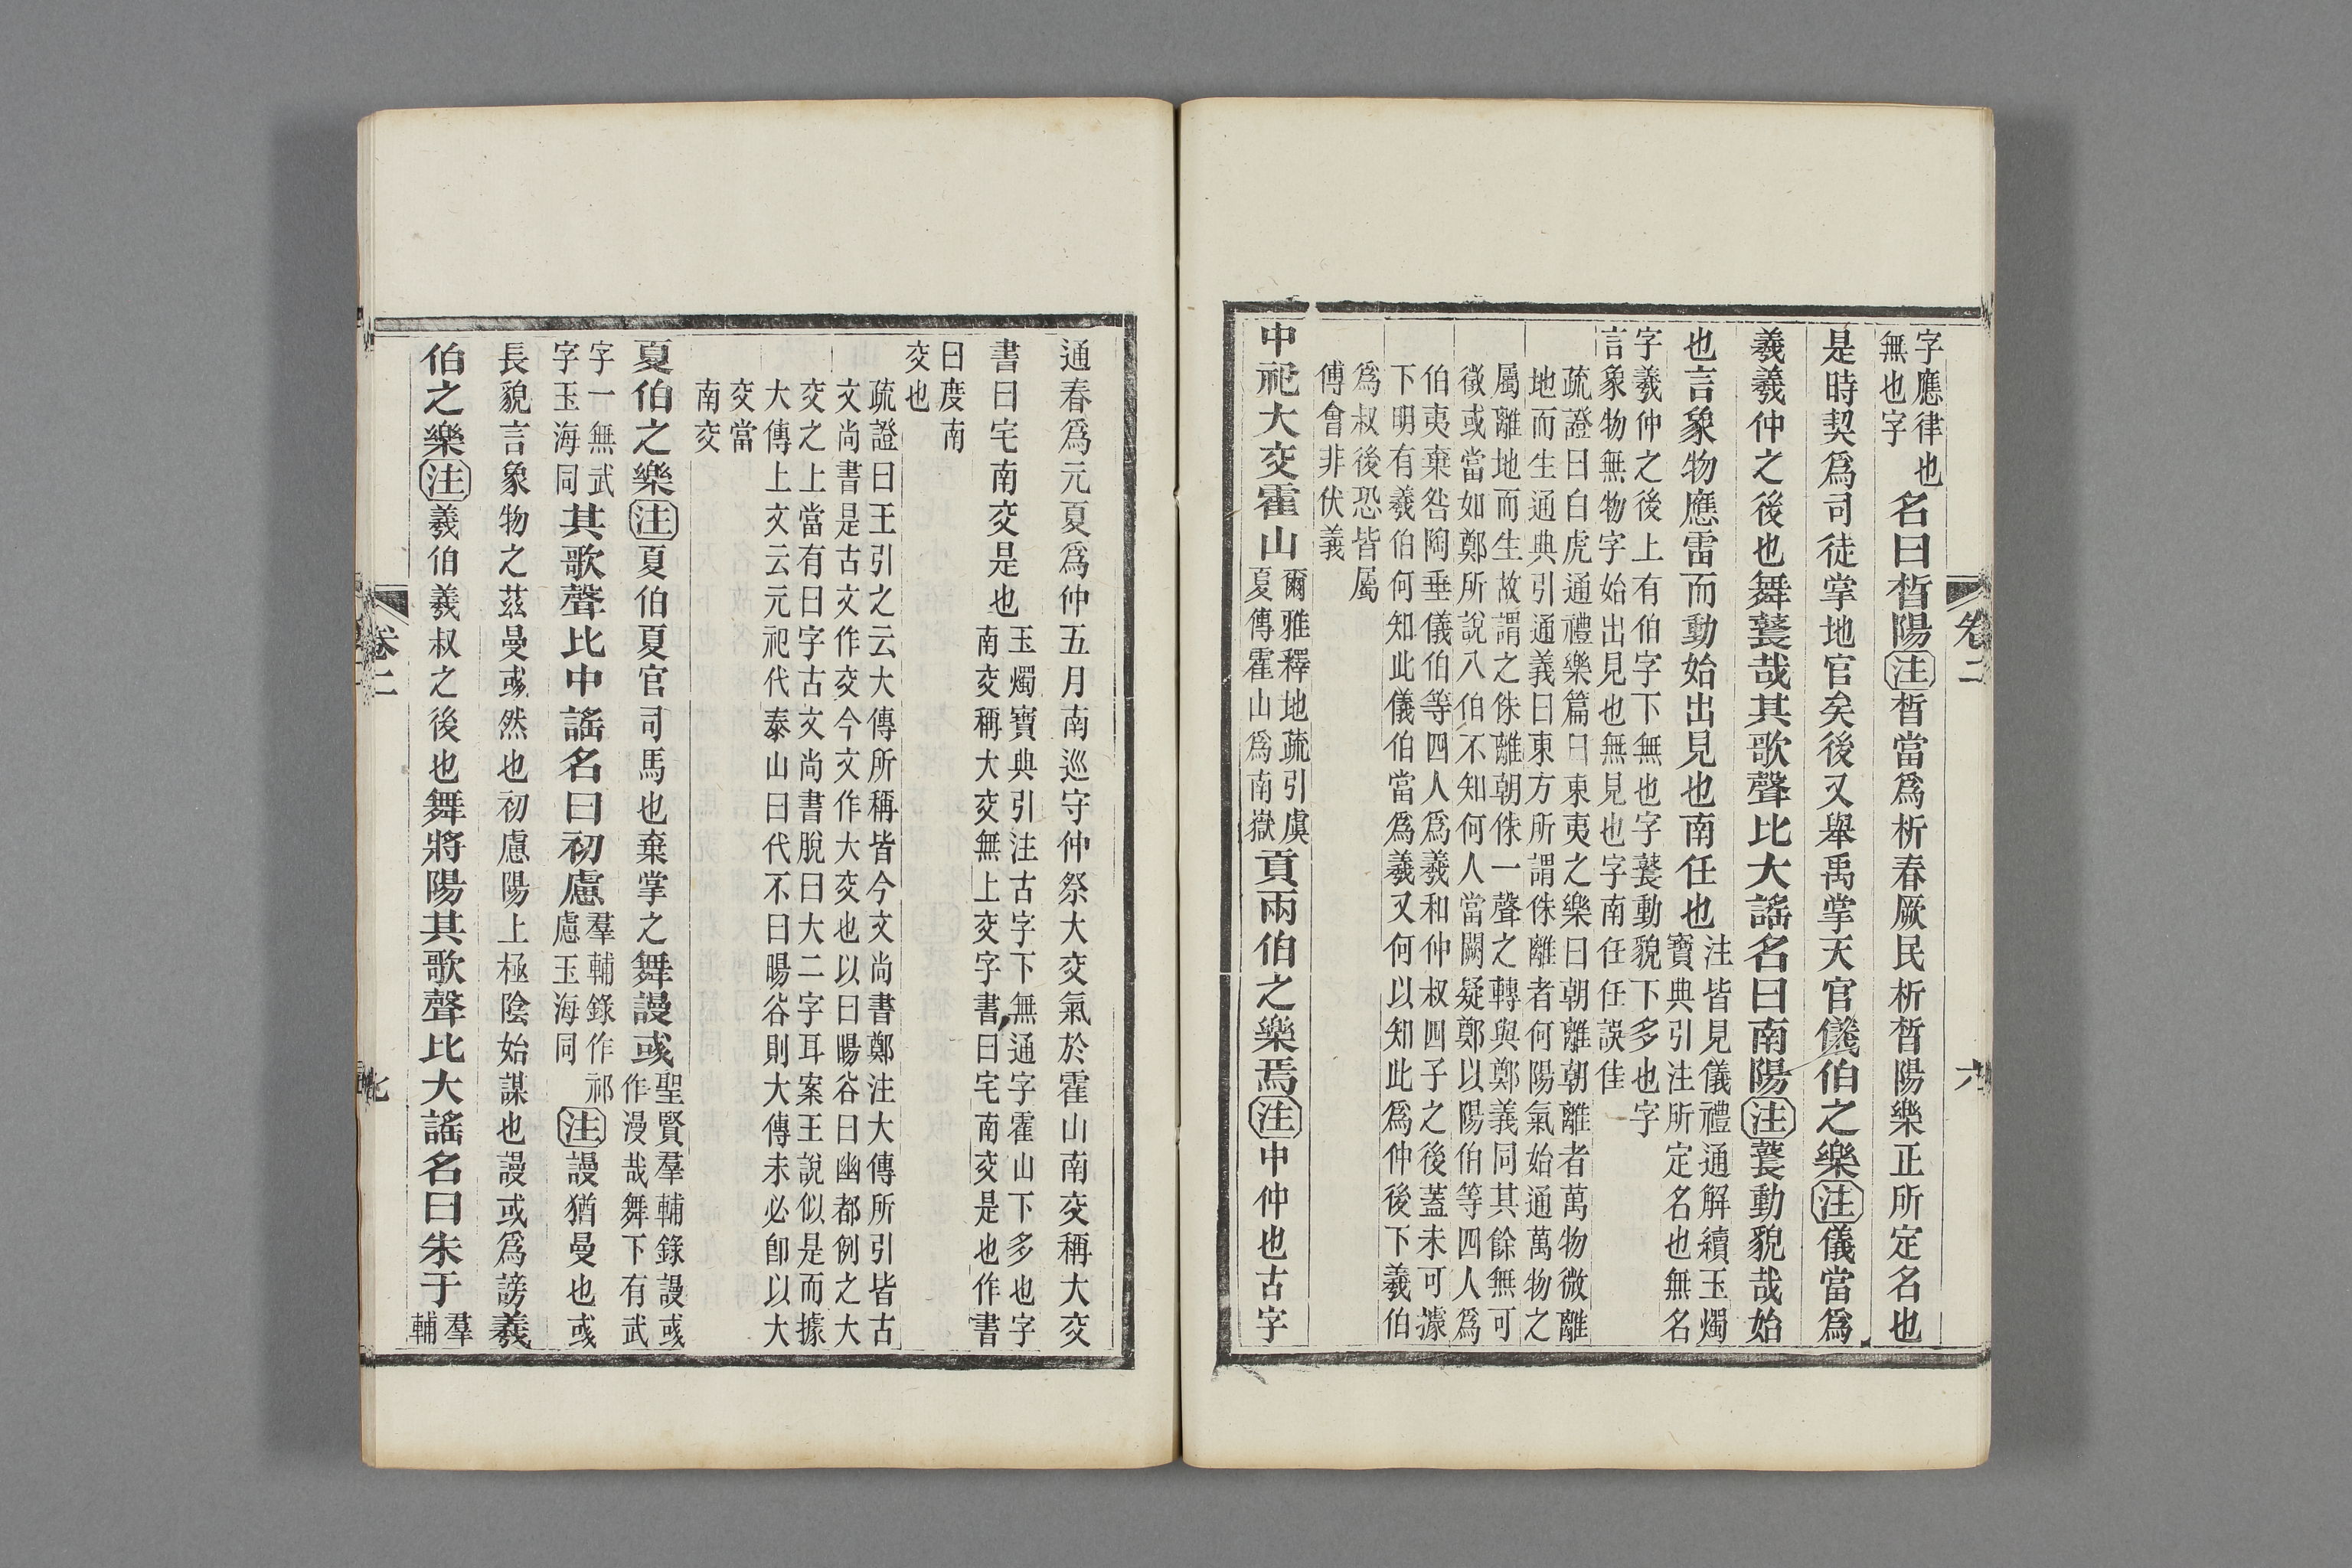 字應律也
無也字
名曰晳陽注晳當爲析春厥民析晳陽樂正所定名也
是時契爲司徒掌地官矣後又舉禹掌天官儀伯之樂注儀當爲
羲羲仲之後也舞鼚哉其歌聲比大謠名曰南陽注鼚動貌哉始
也言象物應雷而動始出見也南任也
注皆見儀禮通解續玉燭
寶典引注所定名也無名
字羲仲之後上有伯字下無也字鼚動貌下多也字
言象物無物字始出見也無見也字南任任誤佳
疏證曰白虎通禮樂篇曰東夷之樂曰朝離朝離者萬物微離
地而生通典引通義曰東方所謂侏離者何陽氣始通萬物之
屬離地而生故謂之侏離朝侏一聲之轉與鄭義同其餘無可
徵或當如鄭所說八伯不知何人當闕疑鄭以陽伯等四人爲
伯夷棄咎陶垂儀伯等四人爲羲和仲叔四子之後蓋未可據
下明有羲伯何知此儀伯當爲羲又何以知此爲仲後下羲伯
爲叔後恐皆屬
傅會非伏義
中祀大交霍山
爾雅釋地疏引虞
夏傳霍山爲南嶽
貢兩伯之樂焉注中仲也古字
卷二
六
通春爲元夏爲仲五月南巡守仲祭大交氣於霍山南交稱大交
書曰宅南交是也
玉燭寶典引注古字下無通字霍山下多也字
南交稱大交無上交字書曰宅南交是也作書
曰度南
交也
疏證曰王引之云大傳所稱皆今文尚書鄭注大傳所引皆古
文尚書是古文作交今文作大交也以曰暘谷曰幽都例之大
交之上當有曰字古文尚書脫曰大二字耳案王說似是而據
大傳上文云元祀代泰山曰代不曰暘谷則大傳未必卽以大
交當
南交
夏伯之樂注夏伯夏官司馬也棄掌之舞謾彧
聖賢羣輔錄謾彧
作漫哉舞下有武
字一無武
字玉海同
其歌聲比中謠名曰初慮
羣輔錄作祁
慮玉海同
注謾猶曼也彧
長貌言象物之茲曼彧然也初慮陽上極陰始謀也謾或爲謗羲
伯之樂注羲伯羲叔之後也舞將陽其歌聲比大謠名曰朱于
羣
輔
卷二
七